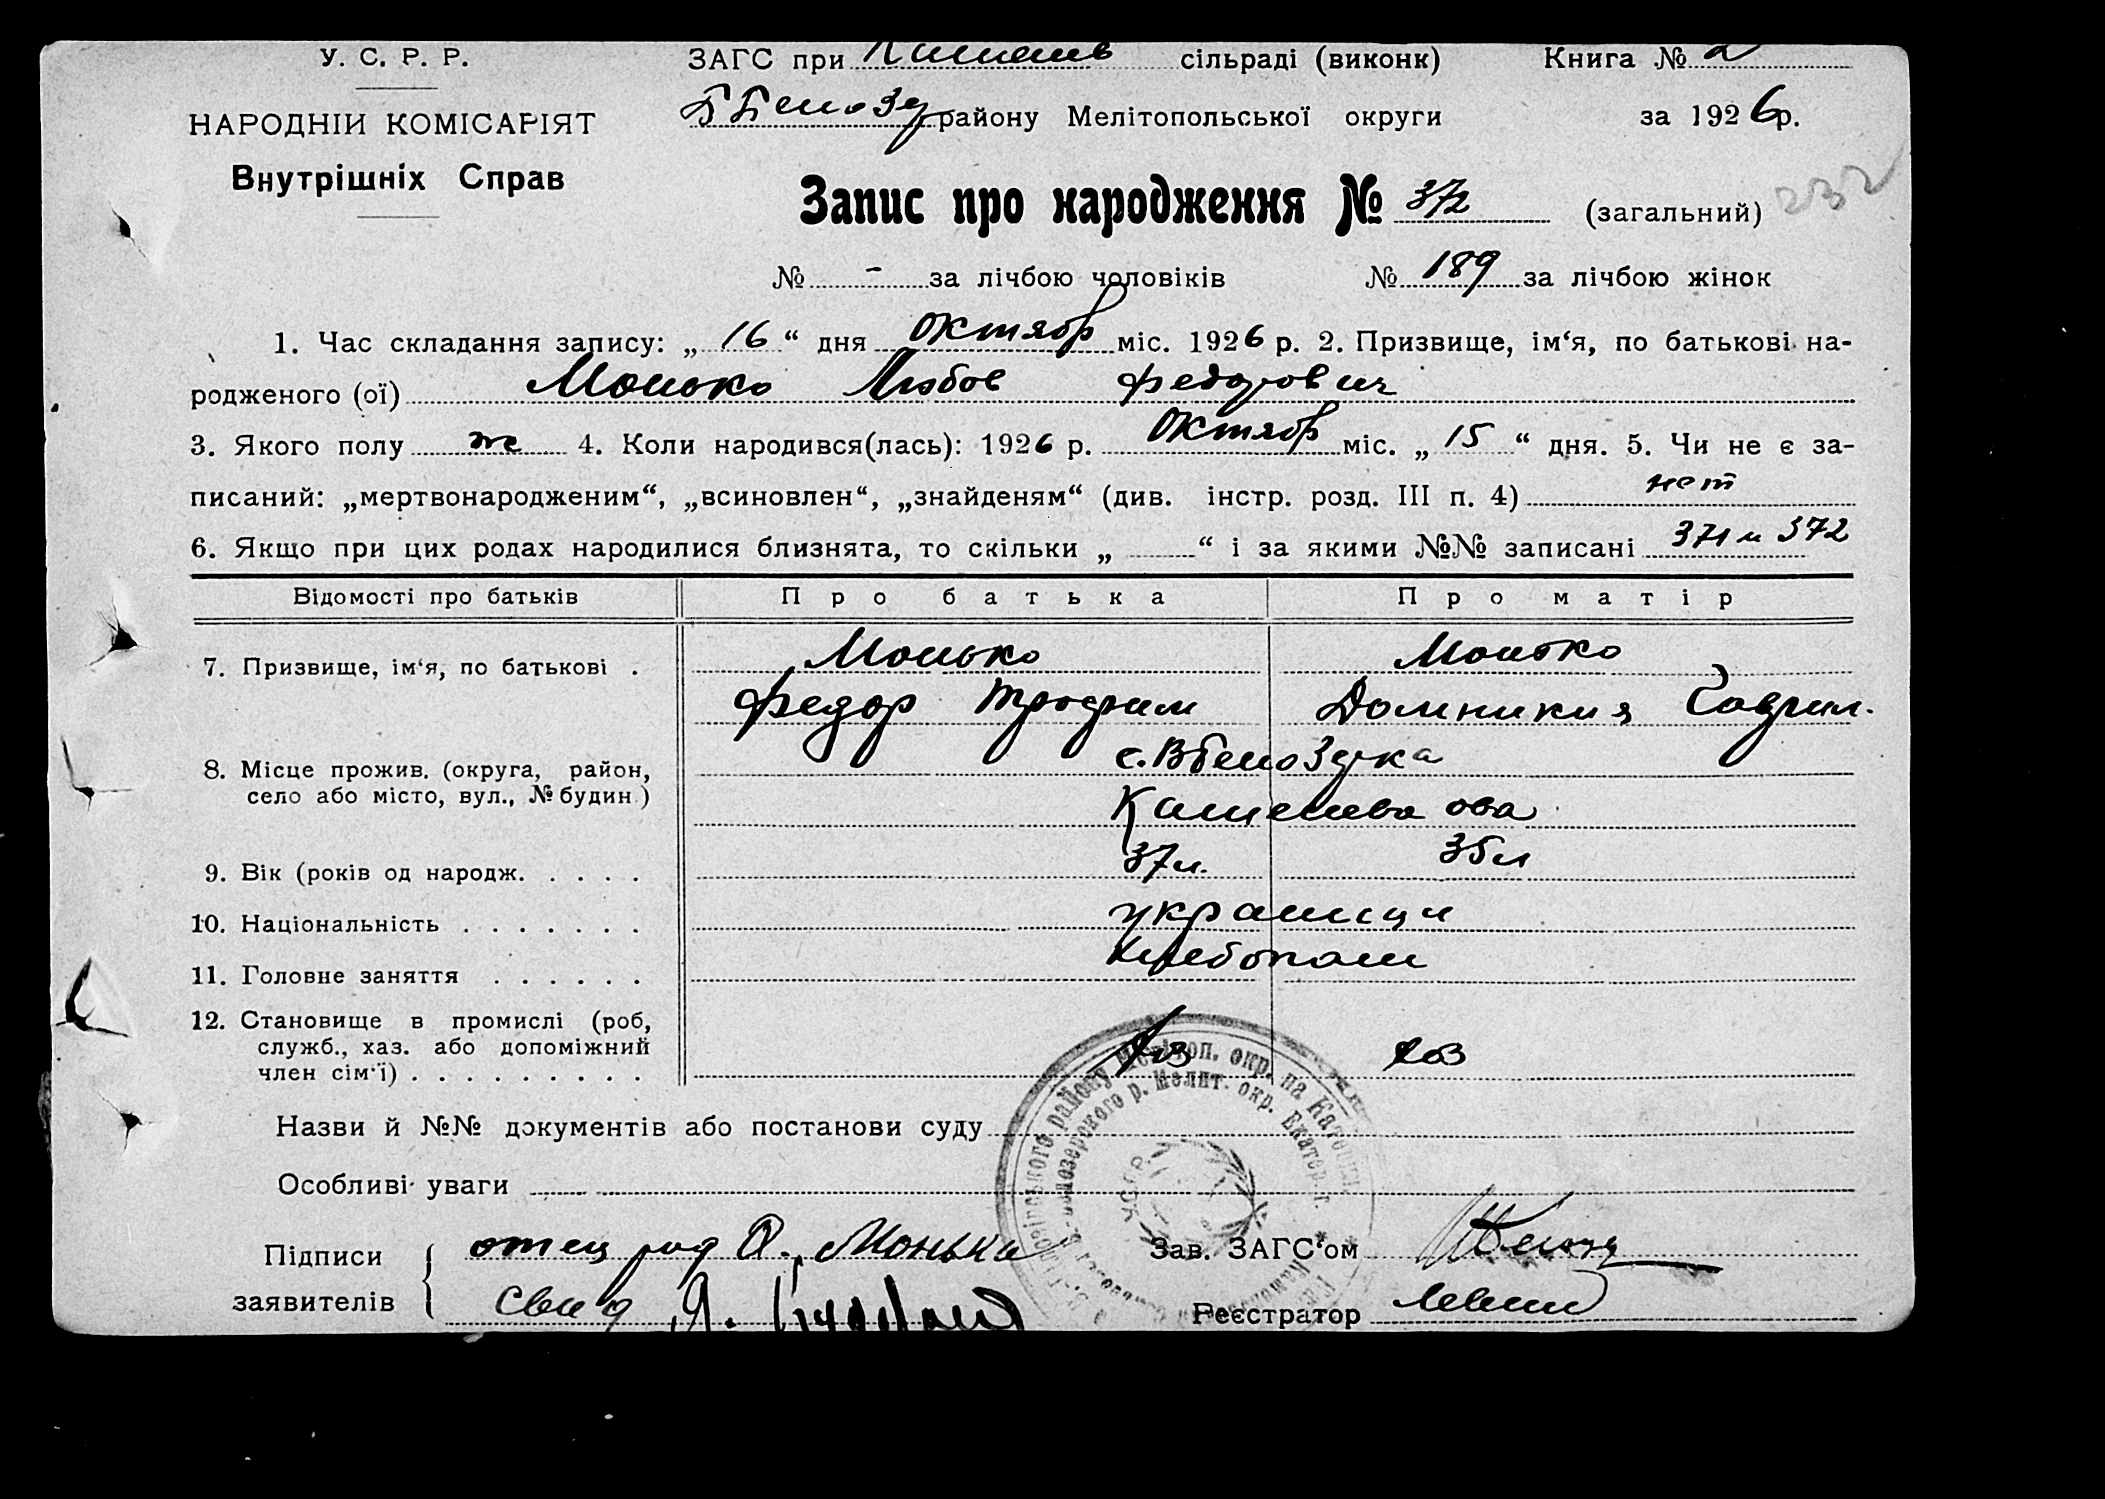 У. С. Р. Р.
ЗАГС при Камышев сільраді (виконк) Книга № 2
НАРОДНІЙ КОМІСАРІЯТ
Б Белозер району Мелітопольської округи за 1926 р.
Внутрішніх Справ
Запис про народження № 372 (загальний) 232
№ - за лічбою чоловіків № 189 за лічбою жінок
1. Час складання запису: „ 16 “ дня Октябр міс. 1926 р. 2. Призвище, ім‘я, по батькові на-
родженого (ої) Монько Любов Федорович
3. Якого полу же 4. Коли народився(лась): 1926 р. Октябр міс. „ 15 “ дня. 5. Чи не є за-
писаний: „мертвонародженим“, „всиновлен“, „знайденям“ (див. інстр. розд. III п. 4) нет
6. Якщо при цих родах народилися близнята, то скільки „ “ і за якими №№ записані 371 и 372
Відомості про батьків Про батька Про матір
7. Призвище, ім‘я, по батькові . Монько Монько
Федор Трофим Домникия Гаврил.
8. Місце прожив. (округа, район, с. Вбелозерка
село або місто, вул., № будин.) Камышева ова
9. Вік (років од народж. . . . . 37 л. 35 л
10. Національність . . . . . . . украинци
11. Головне заняття . . . . . . Хлебопаш
12. Становище в промислі (роб,
служб., хаз. або допоміжний Хоз Хоз
член сім‘ї) . . . . . . . . .
Назви й №№ документів або постанови суду
Особливі уваги
У.С.Р.Р.
Підписи отец род Ф. Монька Зав. ЗАГС‘ом
заявителів Свид Реєстратор